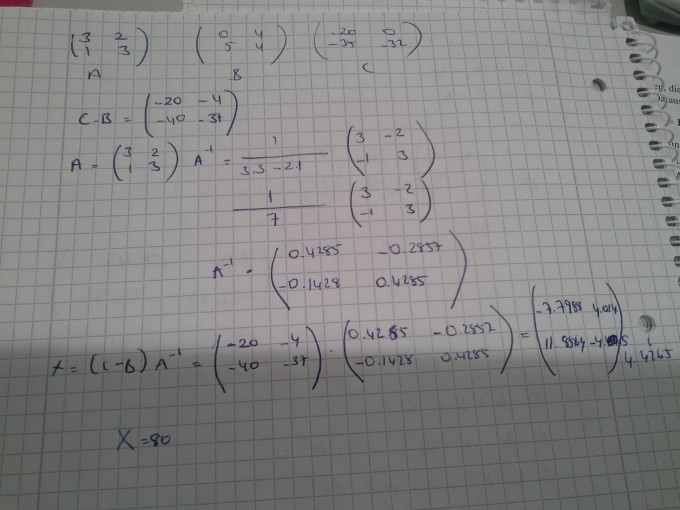 (3 2 1 3) (0 4 5 4) (-20 0 -35 -32)
A B C
C-B = (-20 -4 -40 -37)
A = (3 2 1 3) A⁻¹ = 1 / 3.3 - 2.1 (3 -2 -1 3)
1 / 7 (3 -2 -1 3)
A⁻¹ = (0.4285 -0.2857 -0.1428 0.4285)
X = (C-B) A⁻¹ = (-20 -4 -40 -37) · (0.4285 -0.2857 -0.1428 0.4285) = (-7.7988 4.014
4.4265
X = 80